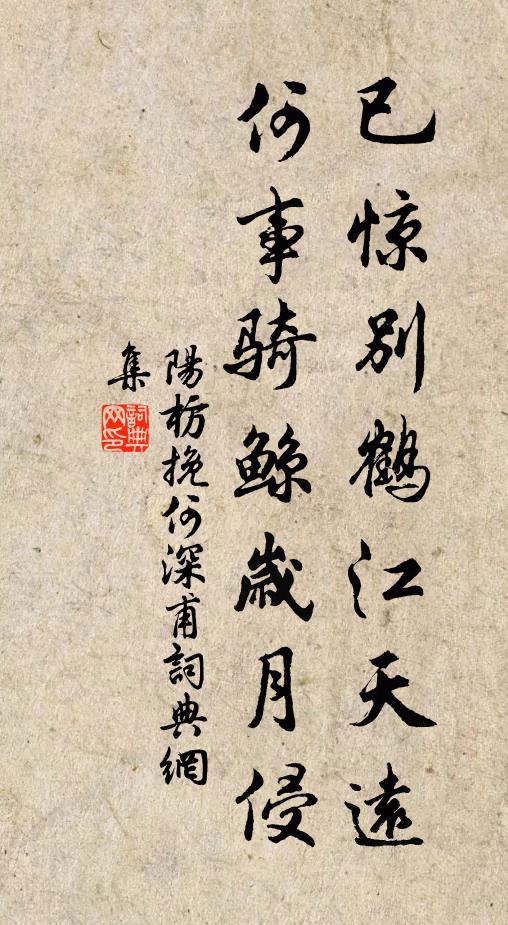 已惊别鹤江天遠
何事骑鲸歲月侵
陽枋挽何深甫詞典網
集
詞典
网印